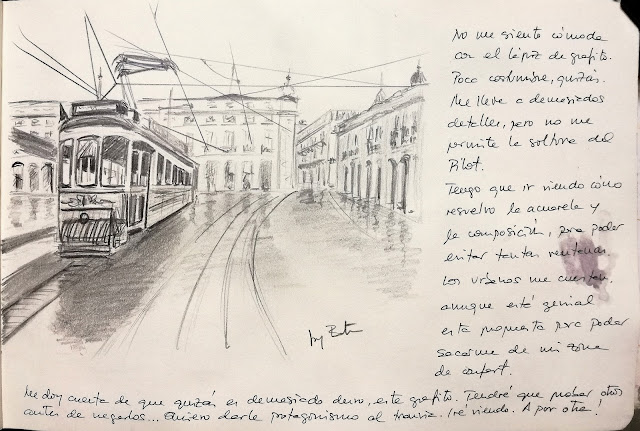 No me siento cómoda
con el lápiz de grafito.
Poca costumbre, quizás.
Me lleva a demasiados
detalles, pero no me
permite la soltura del
Pilot.
Tengo que ir viendo cómo
resuelvo la acuarela y
la composición, para poder
evitar tantas ventanas.
Los urbanos me cuestan,
aunque esté genial
esta propuesta para poder
sacarme de mi zona
de confort.
by
Me doy cuenta de que quizás es demasiado duro, este grafito. Tendré que probar otros
antes de negarlos... Quiero darle protagonismo al tranvía. Iré viendo. A por otra!